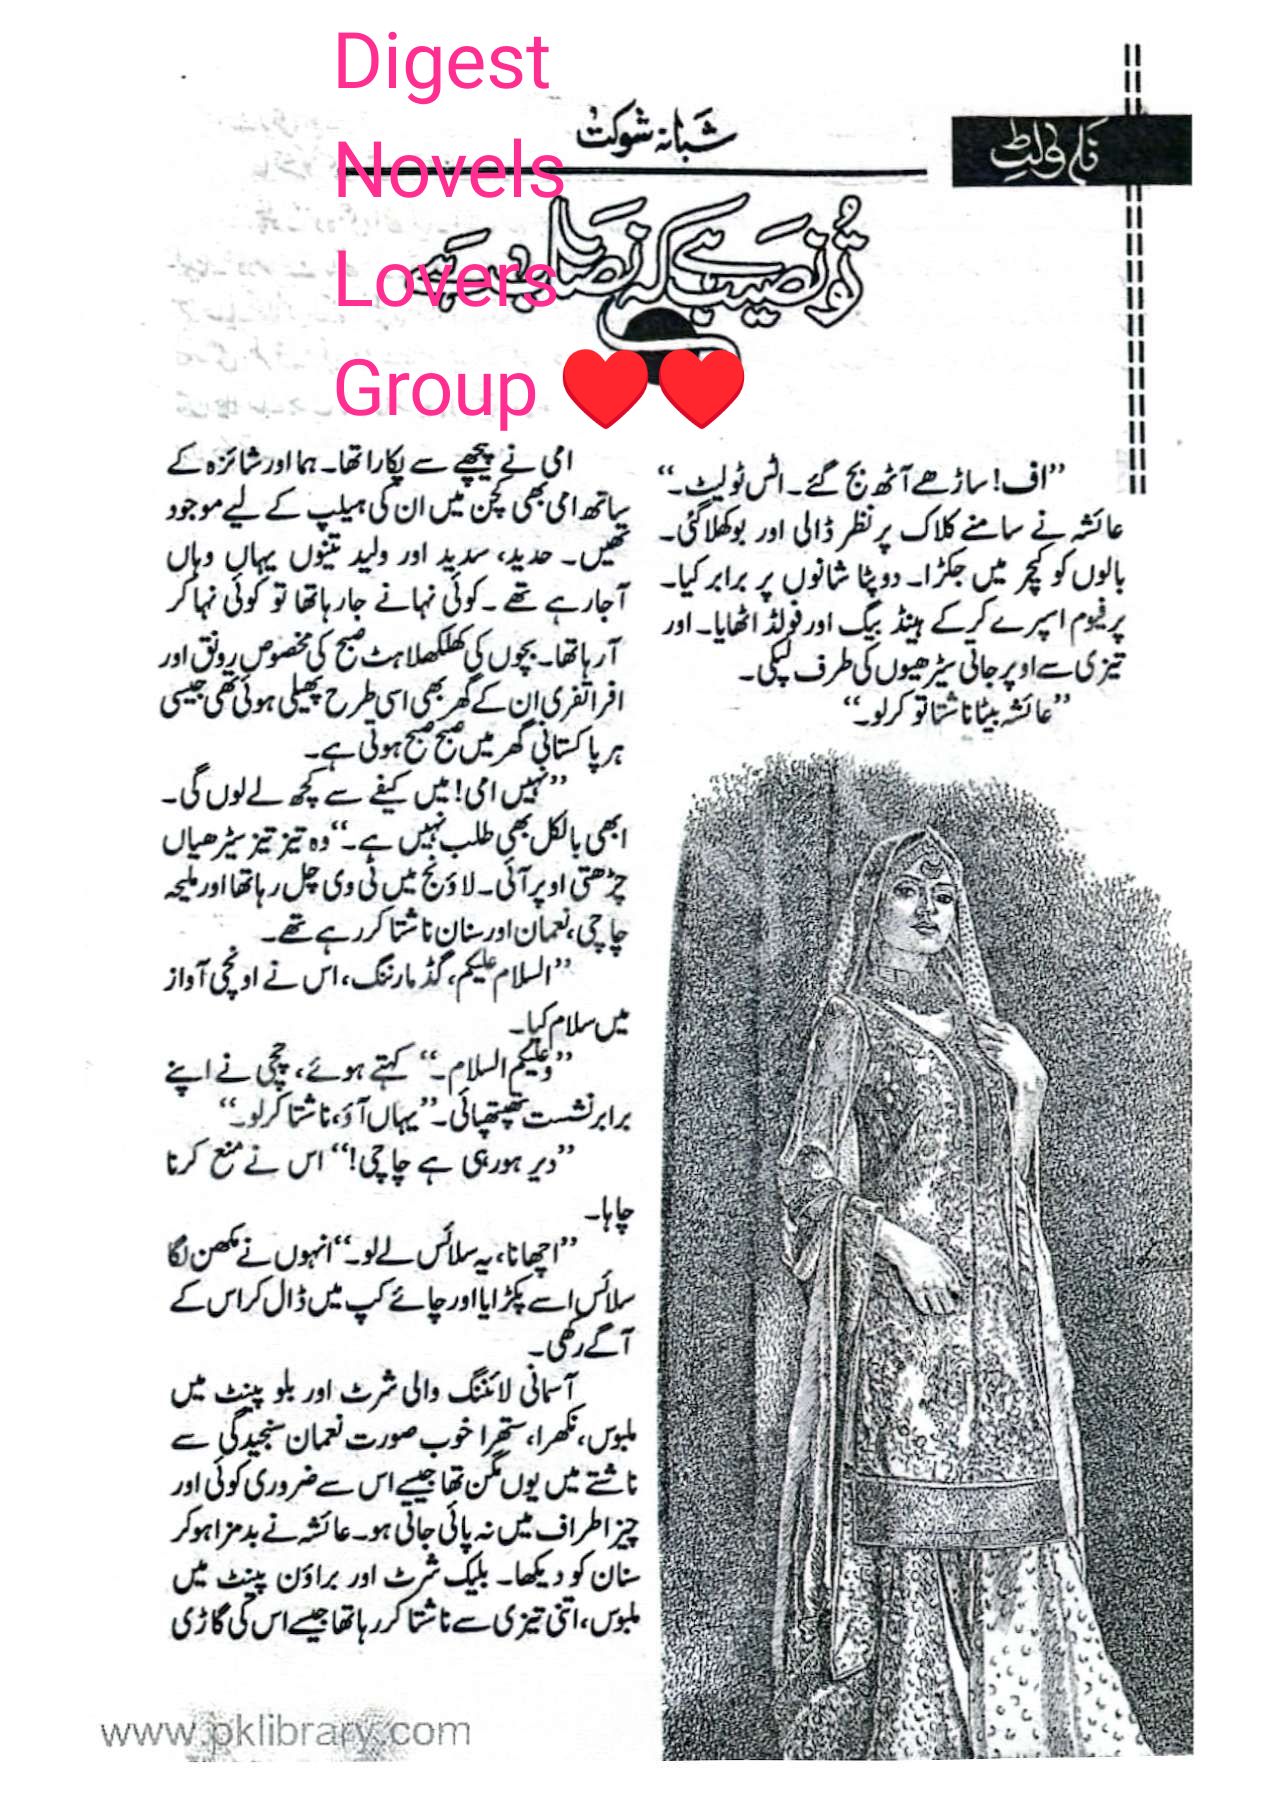 Digest
Novels
Lovers
Group ♥♥
شبانہ شوکت
ناولٹ
تو نصیب ہے کہ نصاب ہے
”اف! ساڑھے آٹھ بج گئے۔ اٹس ٹو لیٹ۔“
عائشہ نے سامنے کلاک پر نظر ڈالی اور بوکھلا گئی۔
بالوں کو کیچر میں جکڑا۔ دوپٹا شانوں پر برابر کیا۔
پرفیوم اسپرے کر کے ہینڈ بیگ اور فولڈ اٹھایا۔ اور
تیزی سے اوپر جاتی سیڑھیوں کی طرف لپکی۔
”عائشہ بیٹا ناشتا تو کر لو۔“
امی نے پیچھے سے پکارا تھا۔ ہما اور شائزہ کے
ساتھ امی بھی کچن میں ان کی ہیلپ کے لیے موجود
تھیں۔ حدید، سدید اور ولید تینوں یہاں وہاں
آجا رہے تھے۔ کوئی نہانے جا رہا تھا تو کوئی نہا کر
آ رہا تھا۔ بچوں کی کھلکھلاہٹ صبح کی مخصوص رونق اور
افراتفری ان کے گھر بھی اسی طرح پھیلی ہوئی تھی جیسی
ہر پاکستانی گھر میں صبح صبح ہوتی ہے۔
”نہیں امی! میں کیفے سے کچھ لے لوں گی۔
ابھی بالکل بھی طلب نہیں ہے۔“ وہ تیز تیز سیڑھیاں
چڑھتی اوپر آئی۔ لاؤنج میں ٹی وی چل رہا تھا اور ملیحہ
چاچی، نعمان اور سنان ناشتا کر رہے تھے۔
”السلام علیکم، گڈ مارننگ، اس نے اونچی آواز
میں سلام کیا۔
”وعلیکم السلام۔“ کہتے ہوئے، چچی نے اپنے
برابر نشست تھپتھپائی۔ ”یہاں آؤ، ناشتا کر لو۔“
”دیر ہو رہی ہے چاچی!“ اس نے منع کرنا
چاہا۔
”اچھا نا، یہ سلائس لے لو۔“ انہوں نے مکھن لگا
سلائس اسے پکڑایا اور چائے کپ میں ڈال کر اس کے
آگے رکھی۔
آسمانی لائننگ والی شرٹ اور بلو پینٹ میں
ملبوس، نکھرا، ستھرا خوب صورت نعمان سنجیدگی سے
ناشتے میں یوں مگن تھا جیسے اس سے ضروری کوئی اور
چیز اطراف میں نہ پائی جاتی ہو۔ عائشہ نے بدمزا ہو کر
سنان کو دیکھا۔ بلیک شرٹ اور براؤن پینٹ میں
ملبوس، اتنی تیزی سے ناشتا کر رہا تھا جیسے اس کی گاڑی
www.pklibrary.com